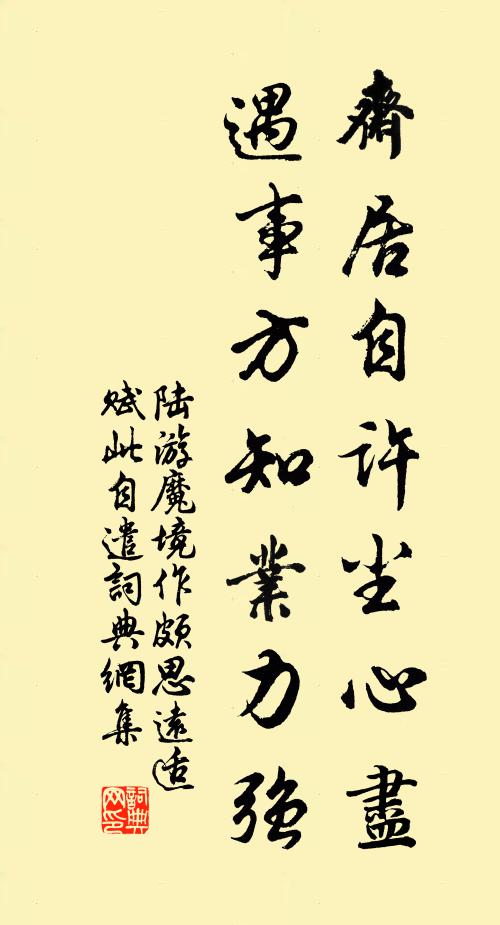 齋居自許尘心盡
遇事方知業力强
陆游魔境作頗思遠适
赋此自遣詞典網集
詞典
网印